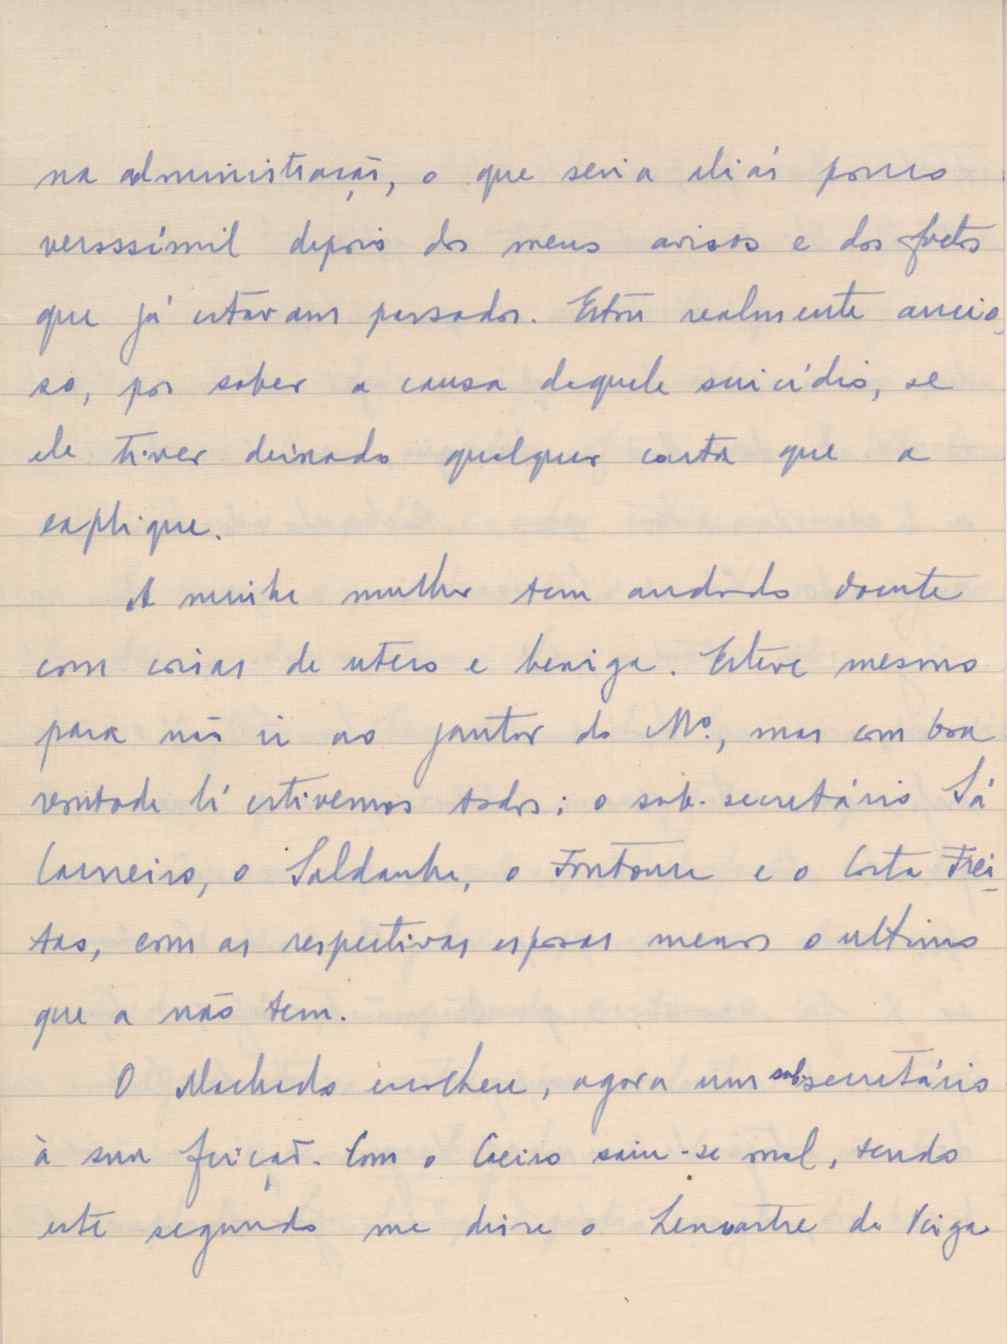 na administração, o que seria aliás pouco
verossímil depois dos meus avisos e dos factos
que já estavam passados. Estou realmente ancio
so, por saber a causa daquele suicídio, se
ele tiver deixado qualquer carta que a
explique.
A minha mulher tem andado doente
com coisas de utero e bexiga. Esteve mesmo
para não ir ao jantar do Mo., mas com boa
vontade lá estivemos todos: o sub-secretário Sá
Carneiro, o Saldanha, o Fontoura e o Costa Frei
tas, com as respectivas esposas menos o ultimo
que a não tem.
O Machado escolheu, agora um sub-secretário
à sua feição. Com o Caeiro saiu-se mal, sendo
este segundo me disse o Lencastre da Veiga